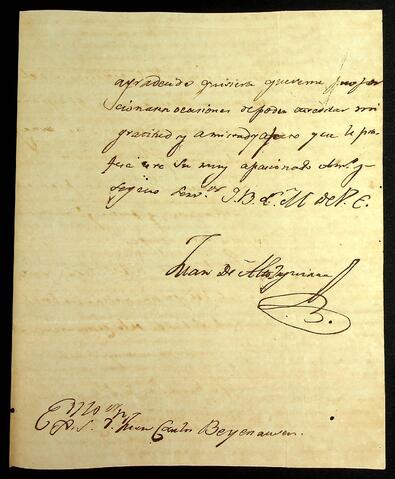 agradecido quisiera que v me propor
cionara ocasiones de poder acreditar mi
gratitud y amistad y que le pro
su muy apasionado Am.º y
seguro Serv.ºr Q. B. L. M de V. E.
Juan De
B.
Ex S. D. Juan Carlos Beyenauer.